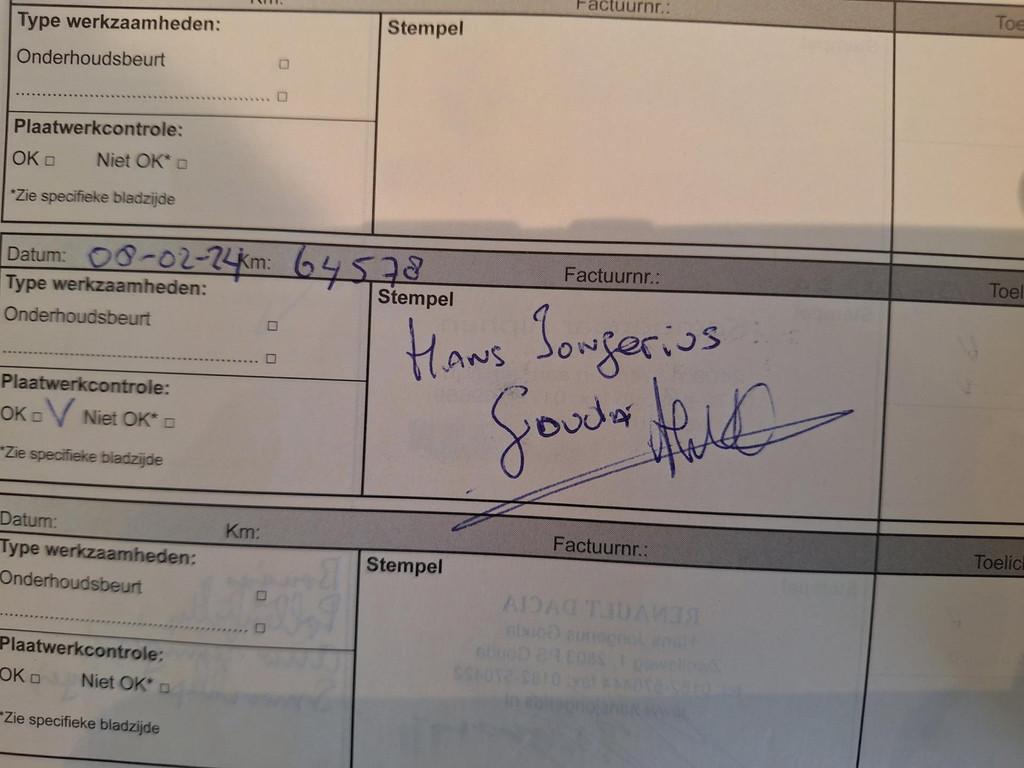 Km: Factuurnr.:
Type werkzaamheden: Stempel Toe
Onderhoudsbeurt □
.................................................. □
Plaatwerkcontrole:
OK □ Niet OK* □
*Zie specifieke bladzijde
Datum: 08-02-24 Km: 64578 Factuurnr.:
Type werkzaamheden: Stempel Toel
Onderhoudsbeurt □
Hans Jongerius
.................................................. □
Plaatwerkcontrole:
Gouda
OK □ V Niet OK* □
*Zie specifieke bladzijde
Datum: Km: Factuurnr.:
Type werkzaamheden: Stempel Toelic
Onderhoudsbeurt □
.................................................. □
RENAULT DACIA
Hans Jongerius Gouda
Plaatwerkcontrole:
OK □ Niet OK* □
*Zie specifieke bladzijde